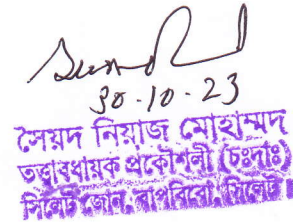 30-10-23
সৈয়দ নিয়াজ মোহাম্মদ
তত্ত্বাবধায়ক প্রকৌশলী (চঃদাঃ)
সিলেট জোন, বাপবিবো, সিলেট।